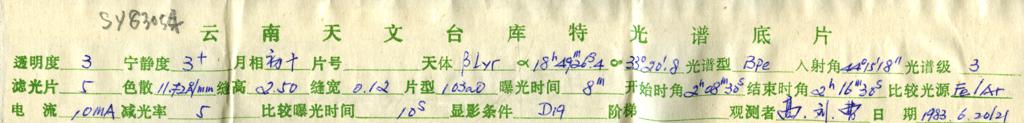 云南天文台库特光谱底片
透明度 3 宁静度 3+ 月相 初十 片号 天体 βLyr α 18h49m26s.4 光谱型 Bpe 入射角 44°15'18" 光谱级 3
滤光片 5 色散 缝高 2.50 缝宽 0.12 片型 103aO 曝光时间 8m 开始时角 2h08m30s 结束时角 2h16m30s 比较光源 Fe/Ar
电流 10mA 减光率 5 比较曝光时间 10s 显影条件 D19 阶梯 观测者 日期 1983.6.20/21